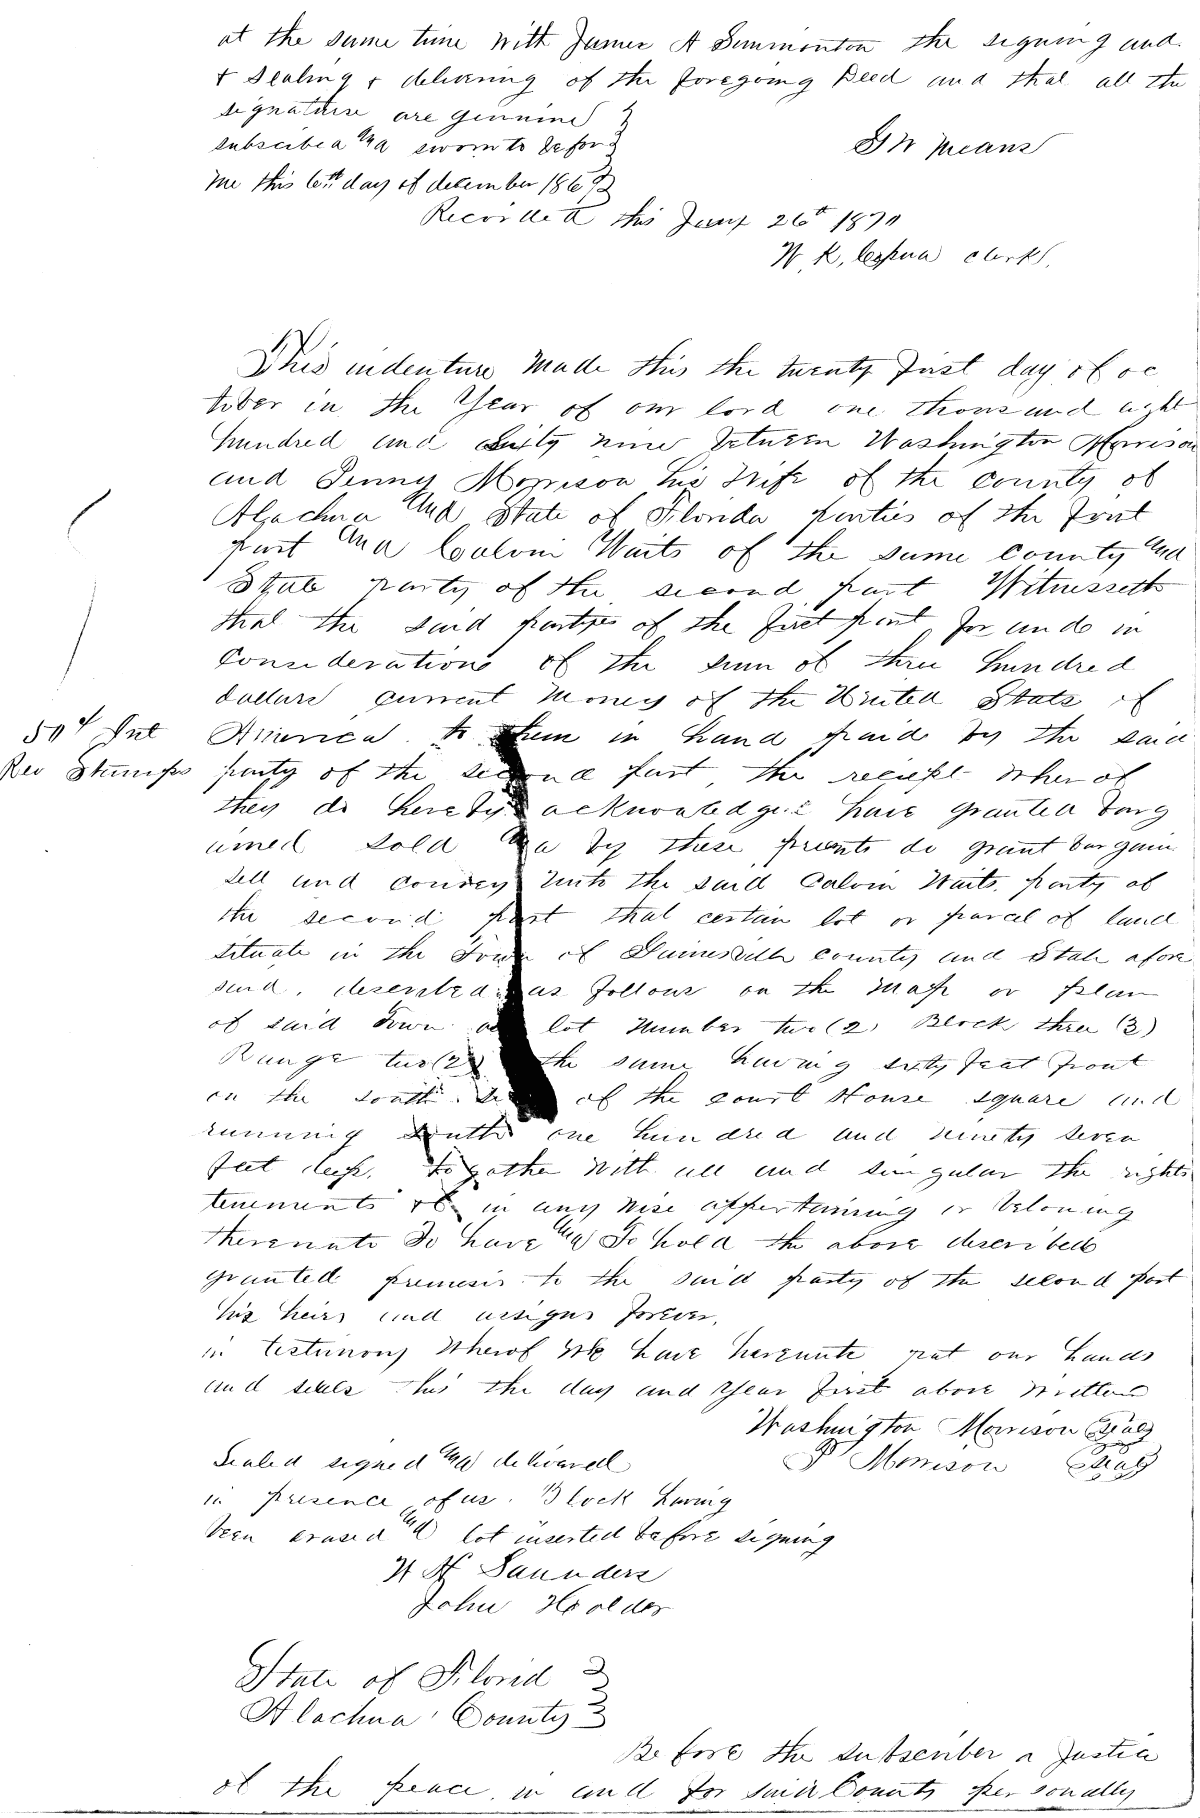 at the same time with James A Simmonton the signing and
& Sealing & delivering of the foregoing Deed and that all the
signature are genuine
subscibed and sworn to before
G W Means
me this 6th day of december 1869
Recorded this Jany 26th 1870
W. K. Cessna clerk
This indenture Made this the twenty first day of oc
tober in the Year of our lord one thousand eight
hundred and sixty nine between Washington Morrison
and Penny Morrison his Wife of the county of
Alachua and State of Florida parties of the first
part and Calvin Waits of the same county and
State party of the second part Witnesseth
that the said parties of the first part for and in
Consideration of the sum of three hundred
dollars current Money of the United State of
50 ct Int
Rev Stamps
America to them in hand paid by the said
party of the second part the reciept wherof
they do hereby acknowledge have granted barg
ained sold and by these presents do grant bargain
sell and convey unto the said Calvin Waits party of
the second part that certain lot or parcel of land
situate in the Town of Gainesville county and State afore
said, described as follows on the map or plan
of said Town as lot number two (2) Block three (3)
Range two (2) the same having sixty feet front
on the south side of the court House square and
running south one hundred and ninety seven
feet deep. together with all and singular the rights
tenements &c in any wise appertaining or beloning
therunto To have and To hold the above described
granted premesis to the said party of the second part
his heirs and assigns forever.
in testimony wherof We have hereunto put our hands
and seals this the day and year first above written
Washington Morrison Seal
P Morrison Seal
Sealed signed and delivared
in presence of us. Block having
been erased and lot inserted before signing
W H Saunders
John Holder
State of Florid
Alachua County
Before the subscriber a Justice
of the peace in and for said County personally